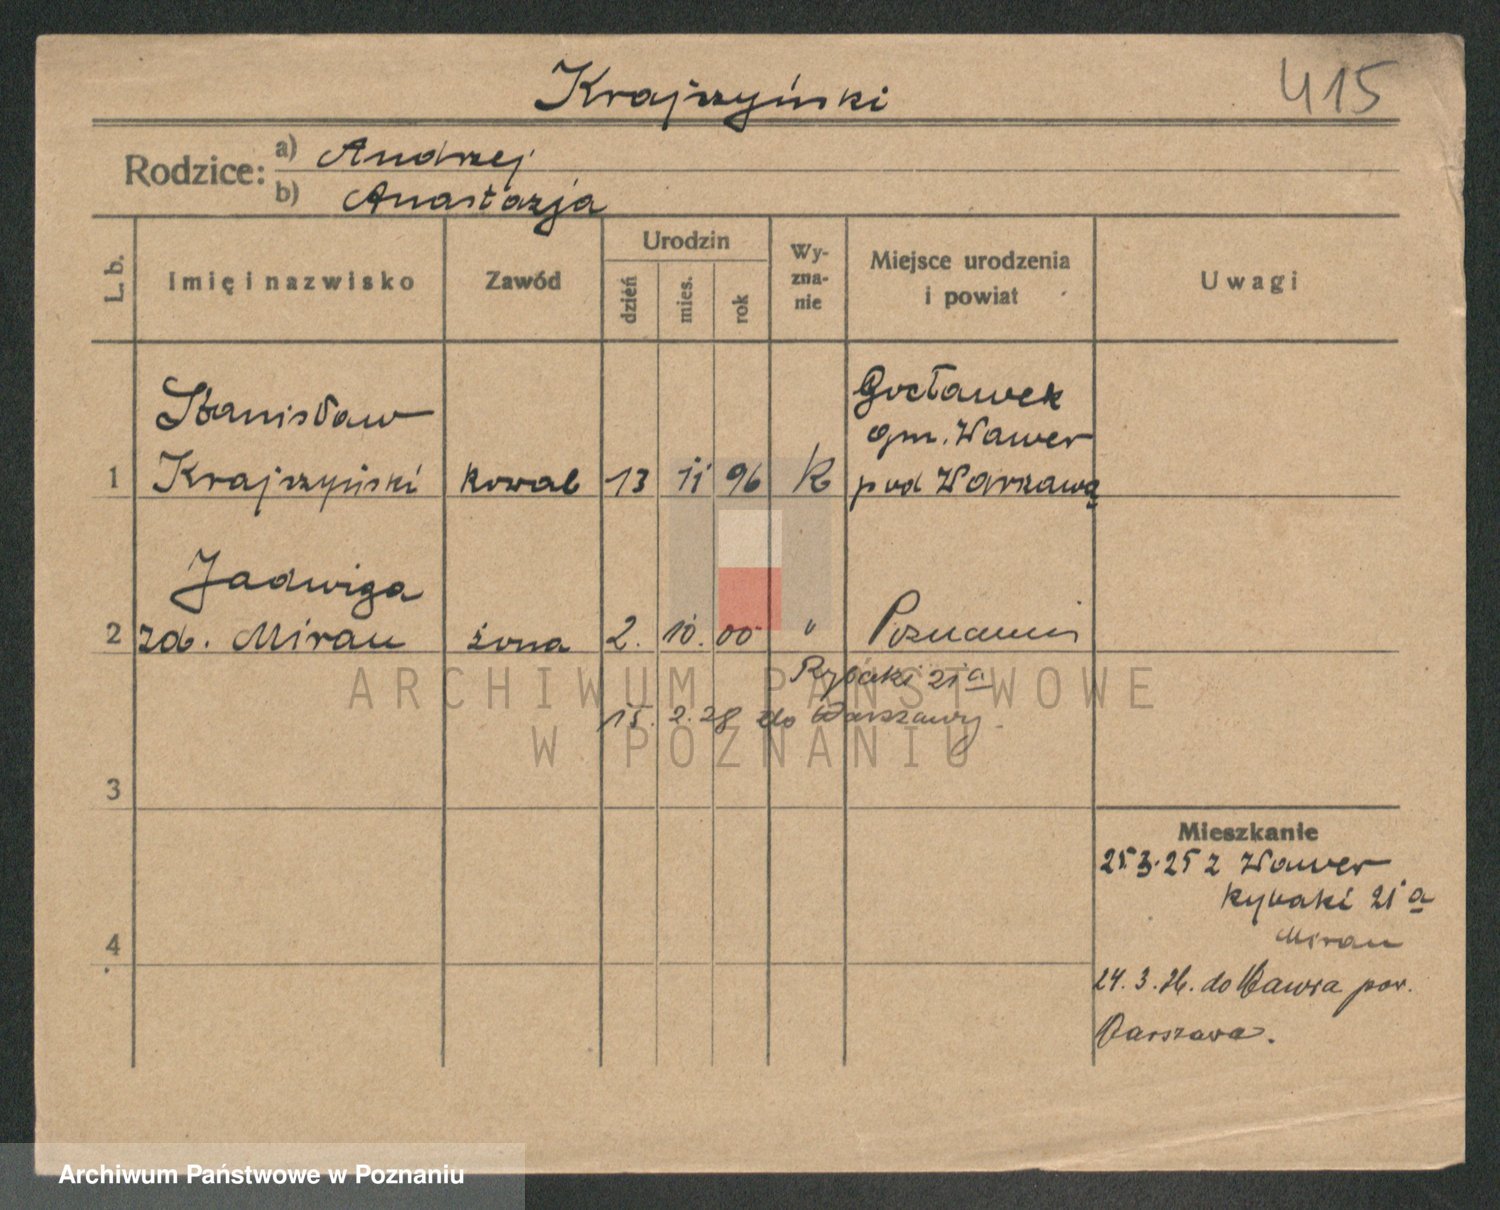 Krajszyński
415
Rodzice:
a) Andrzej
b) Anastazja
L. b.
Imię i nazwisko
Zawód
Urodzin
dzień
mies.
rok
Wy-
zna-
nie
Miejsce urodzenia
i powiat
Uwagi
1
Stanisław
Krajszyński
kowal
13
11
96
K
Gocławek
gm. Wawer
pod Warszawą
2
Jadwiga
zd. Miran
żona
2.
10.
00
"
Poznaniu
Rybaki 21a
15. 2. 28 do Warszawy.
3
4
Mieszkanie
25.3.25 z Wawer
Rybaki 21a
Miran
24. 3. 26. do Wawra pow.
Warszawa.
ARCHIWUM PAŃSTWOWE
W POZNANIU
Archiwum Państwowe w Poznaniu